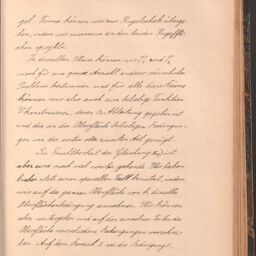 gel. Ferner können wir zur Kugelschale überge-
hen, indem wir successive an den beiden Kugelflä-
chen spiegeln.
In derselben Weise können wir P₁ und P₂
noch für eine ganze Anzahl anderer räumlicher
Probleme bestimmen und für alle diese Räume
können wir also auch eine beliebige Funktion
V konstruieren, deren Δ Ableitung gegeben ist
und die an der Oberfläche beliebigen Bedingun-
gen von der ersten oder zweiten Art genügt.
Die Fruchtbarkeit der Gleichung ist
aber eine noch viel weiter gehende. Wir haben
bisher stets einen speziellen Fall benutzt, indem
wir auf der ganzen Oberfläche von k dieselbe
Oberflächenbedingung annehmen. Wir können
aber weitergehen und auf den einzelnen Teilen der
Oberfläche verschiedene Bedingungen vorschrei-
ben. Auf dem Bereich I sei die Bedingung,